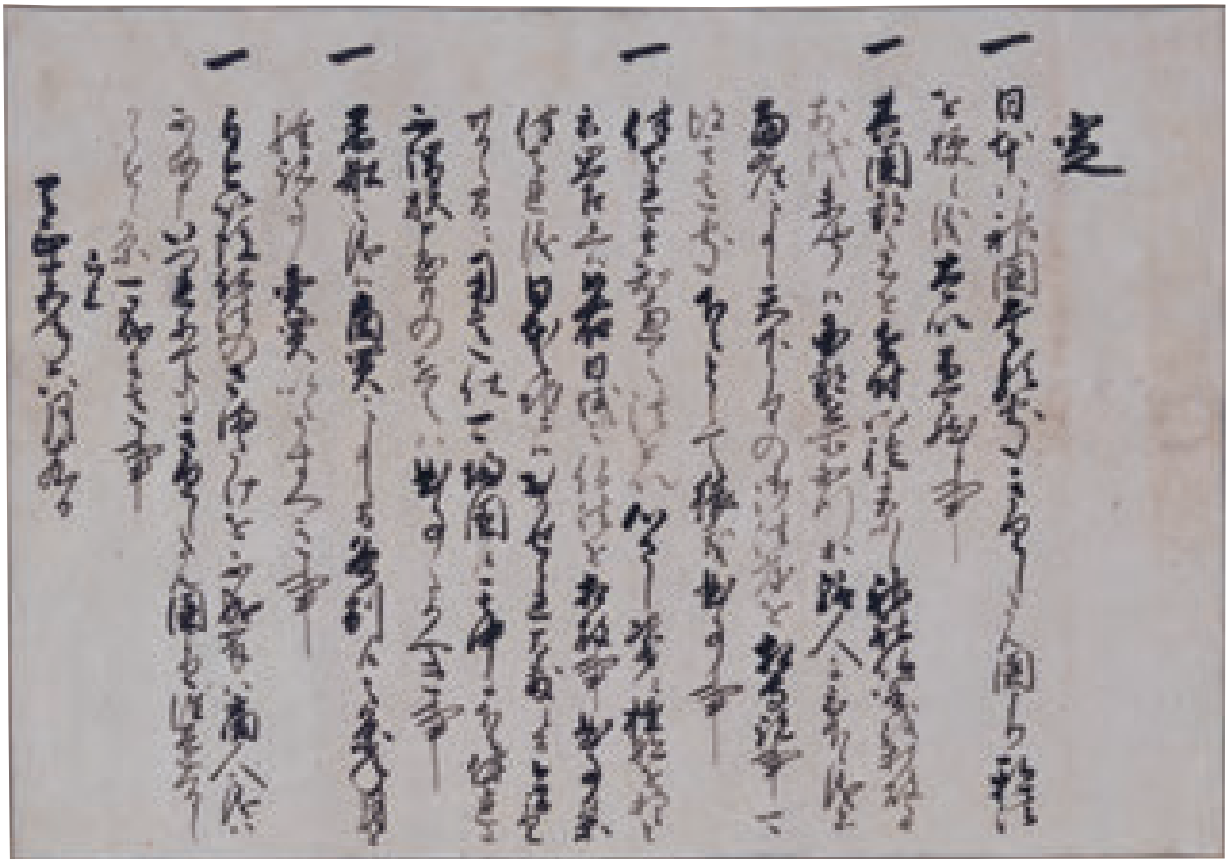 定
一 日本ハ神国たる処きりしたん国より邪法
を授候儀太以不可然候事
一 其国郡之者を近付門徒になし神社仏閣を打破
前代未聞候国郡在所知行等給人ニ被下候儀者
当座之事候天下よりの御法度を相守諸事可
得其意処下々として猥義曲事事
一 伴天連其知恵之法を以心さし次第ニ檀那を持
候と被思召候へハ如右日域之仏法を相破事曲事候条
伴天連儀日本之地ニハおかせられ間敷候間今日より廿日
之間ニ用意仕可帰国候其中ニ下々伴天連
不謂族申懸もの在之ハ曲事たるへき事
一 黒船之儀ハ商買之事候間各別ニ候之条年月
経諸事売買いたすへき事
一 自今以後仏法のさまたけを不成輩ハ商人之儀ハ
不及申いつれニてもきりしたん国より往還
くるしからす候条可成其意事
已上
天正十五年六月十九日